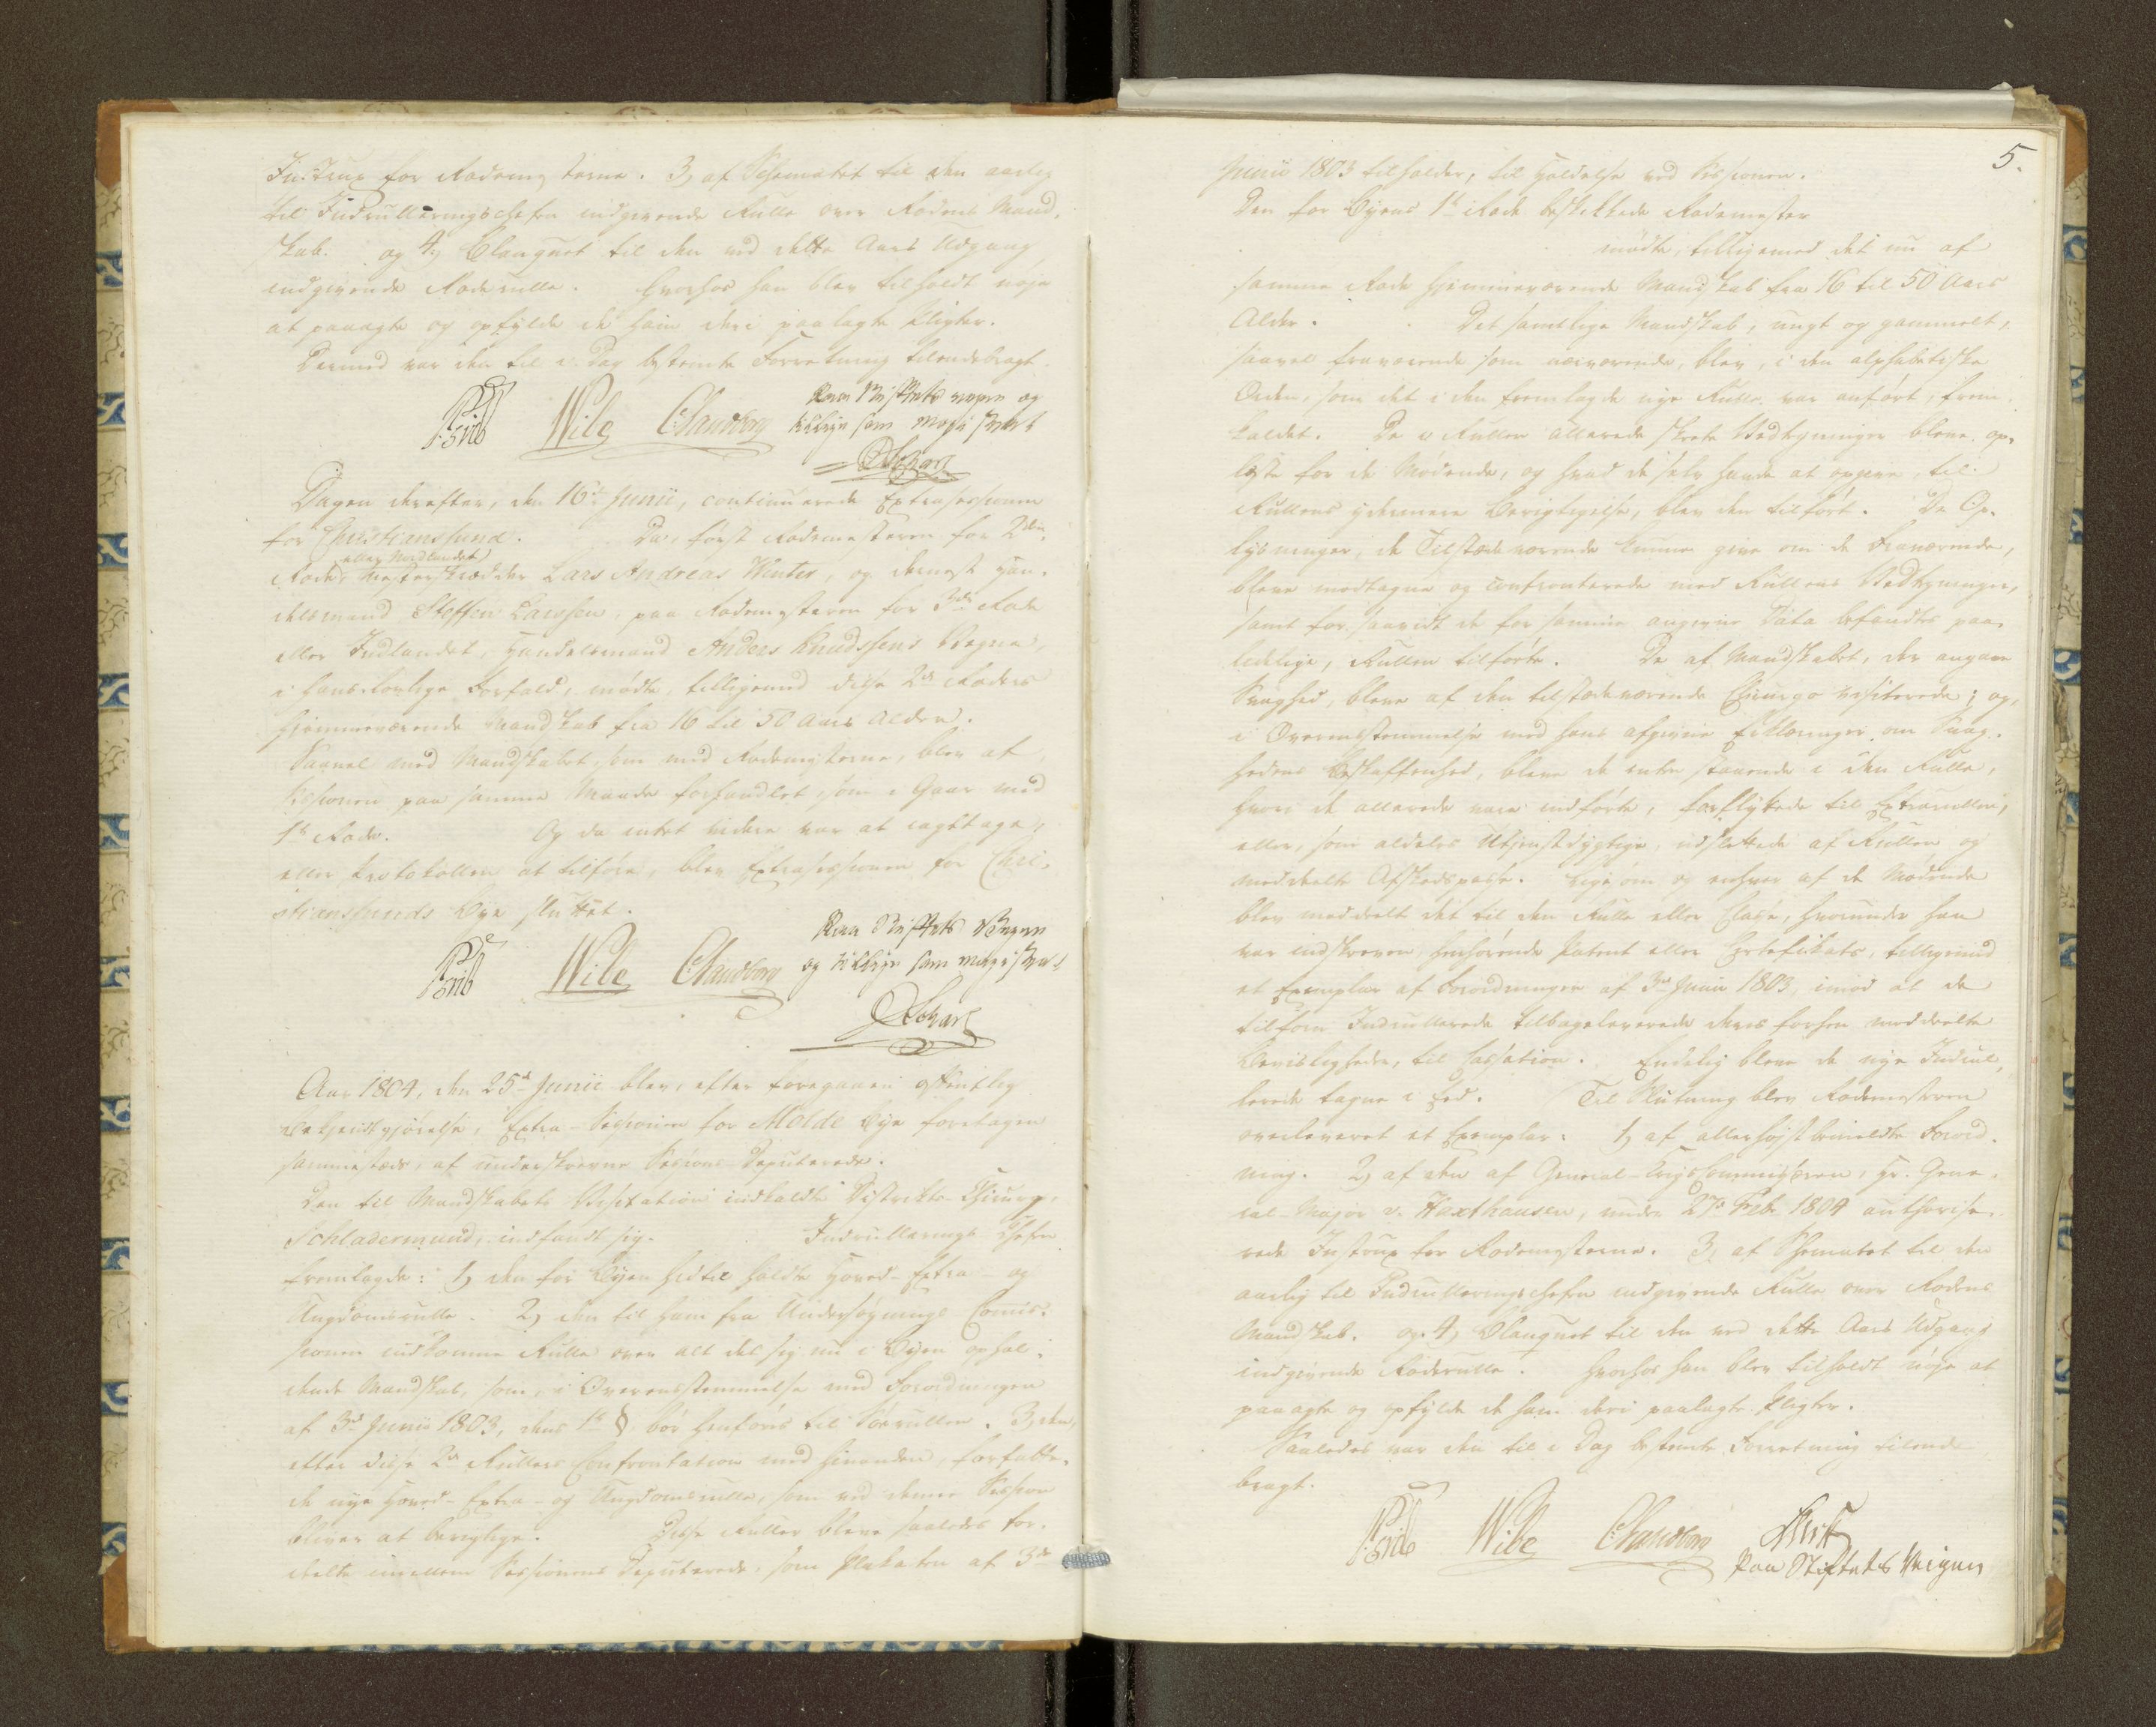 Instrux for Rodemesterne. 3, af Schematet til den aarlig
til Indrulleringschefen indgivende Rulle over Rodens Mand-
skab. og 4, Blanquet til den ved dette Aars Udgang
indgivende Roderulle. Hvorhos han blev tilholdt nøje
at paaagte og opfylde de ham deri paalagte Pligter.
Dermed var den til i Dag bestemte Forretning tilendebragt.
Wibe Chandborg Paa Stiftets vegne og
tillige som Magistrat
Dagen derefter, den 16de Junii, continuerede Extrasessionen
for Christianssund. Da, først Rodemesteren for 2den
eller Nordlandet
Rode, Mesterskrædder Lars Andreas Winter, og dernæst Han-
delsmand Steffen Larssen, paa Rodemesteren for 3die Rode
eller Indlandet, Handelsmand Anders Knudssens Vegne,
i hans lovlige Forfald, mødte, tilligemed disse 2de Roders
hjemmeværende Mandskab fra 16 til 50 Aars Alder.
Saavel med Mandskabet, som med Rodemesterne, blev af
Sessionen paa samme Maade forhandlet, som i Gaar med
1ste Rode. Og da intet videre var at iagttage,
eller Protokollen at tilføre, blev Extrasessionen for Chri-
stianssunds Bye sluttet.
Wibe Chandborg Paa Stiftets Vegne
og tillige som Magistrat
Aar 1804, den 25de Junii blev, efter foregaaen offentlig
Bekjendtgjørelse, Extra-Sessionen for Molde Bye foretagen
sammesteds, af underskrevne Sessions-Deputerede.
Den til Mandskabets Visitation indkaldte Districts-Chirurg,
Schladermund, indfandt sig. Indrullerings Chefen
fremlagde: 1, den for Byen hidtil holdte Hoved-Extra- og
Ungdomsrulle. 2, den til ham fra Undersøgnings Comis-
sionen indkomne Rulle over alt det sig nu i Byen ophol-
dende Mandskab, som, i Overensstemmelse med Forordningen
af 3die Junii 1803, dens 1ste §, bør henføres til Søerullen. 3, den,
efter disse 2de Rullers Confrontation med hinanden, forfatte-
de nye Hoved-Extra- og Ungdomsrulle, som ved denne Session
bliver at berigtige. Disse Ruller bleve saaledes for-
deelte imellem Sessionens Deputerede, som Plakaten af 3die
5.
Junii 1803 tilholder, til Holdelse ved Sessionen.
Den for Byens 1ste Rode beskikkede Rodemester
mødte, tilligemed det nu af
samme Rode hjemmeværende Mandskab fra 16 til 50 Aars
Alder. Det samtlige Mandskab, ungt og gammelt,
saavel fraværende som nærværende, blev, i den alphabetiske
Orden, som det i den fremlagde nye Rulle var anført, frem-
kaldet. De i Rullen allerede skrete Vedtegninger bleve op-
læste for de Mødende, og hvad de selv havde at opgive, til
Rullens ydermere Berigtigelse, blev den tilført. De Op-
lysninger, de Tilstædeværende kunne give om de Fraværende,
bleve modtagne og confronterede med Rullens Vedtegninger,
samt for saavidt de for samme angivne Data befandtes paa-
lidelige, Rullen tilførte. De af Mandskabet, der angave
Svaghed, bleve af den tilstædeværende Chirurgo visiterede; og,
i Overensstemmelse med hans afgivne Erklæringer om Svag-
hedens Beskaffenhed, bleve de enten staaende i den Rulle,
hvori de allerede vare indførte, forflyttede til Extrarullen,
eller, som aldeles Utjenstdygtige, udslettede af Rullen og
meddeelte Afskedspasse. Ligesom og enhver af de Mødende
blev meddeelt det til den Rulle eller Classe, hvorunder han
var indskreven, henhørende Patent eller Certefikats, tilligemed
et Exemplar af Forordningen af 3die Junii 1803, imod at de
tilforn Indrullerede tilbageleverede deres forhen meddeelte
Beviisligheder, til Cassation. Endelig bleve de nye Indrul-
lerede tagne i Eed. Til Slutning blev Rodemesteren
overleveret et Exemplar: 1, af allerhøjstbemeldte Forord-
ning. 2, af den af General-Krigscommissæren, Hr. Gene-
ral-Major v. Haxthausen, under 27de Febr. 1804 authorise-
rede Instrux for Rodemesterne. 3, af Schematet til den
aarlig til Indrulleringschefen indgivende Rulle over Rodens
Mandskab. og 4, Blanquet til den ved dette Aars Udgang
indgivende Roderulle. Hvorhos han blev tilholdt nøje at
paaagte og opfylde de ham deri paalagte Pligter.
Saaledes var den til i Dag bestemte Forretning tilende
bragt.
Wibe Chandborg
Paa Stiftets Veigne